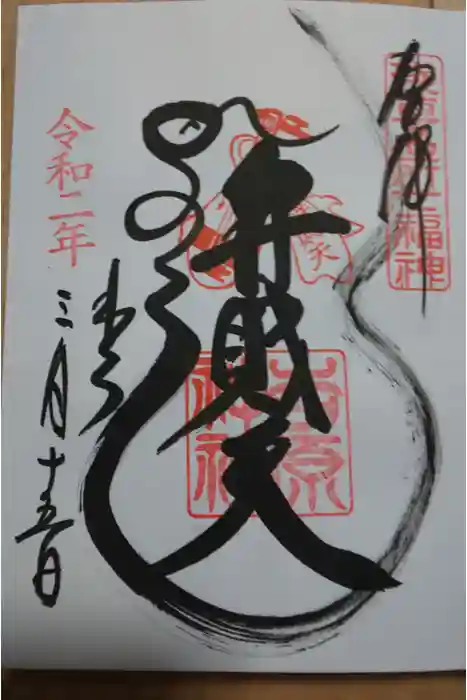 奉拝
福神
弁財天
吉原神社
令和二年
三月十五日